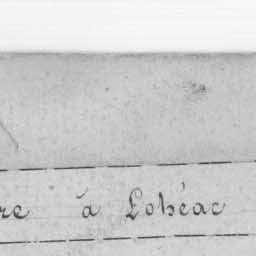 re à Lohéac